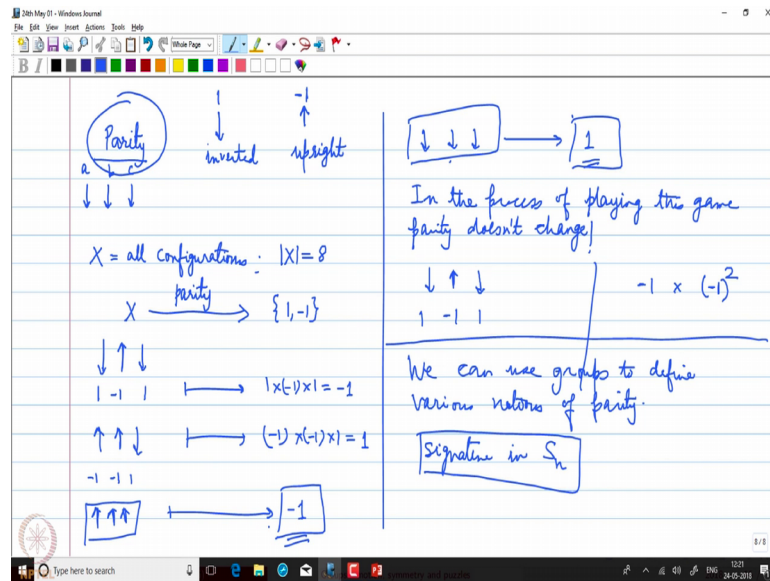 24th May 01 - Windows Journal
File Edit View Insert Actions Tools Help
Whole Page
B I
Parity
1 -1
↓ ↑
inverted upright
a b c
↓ ↓ ↓
X = all configurations: |X|=8
X parity → {1,-1}
↓ ↑ ↓
1 -1 1 ↦ 1x(-1)x1 = -1
↑ ↑ ↓ ↦ (-1) x(-1) x1 = 1
-1 -1 1
↑ ↑ ↑ ↦ -1
↓ ↓ ↓ → 1
In the process of playing this game
parity doesn't change!
↓ ↑ ↓
1 -1 1
-1 x (-1)²
We can use groups to define
various notions of parity.
signature in Sₙ
8/8
Type here to search
symmetry and puzzles
ENG
12:21
24-05-2018